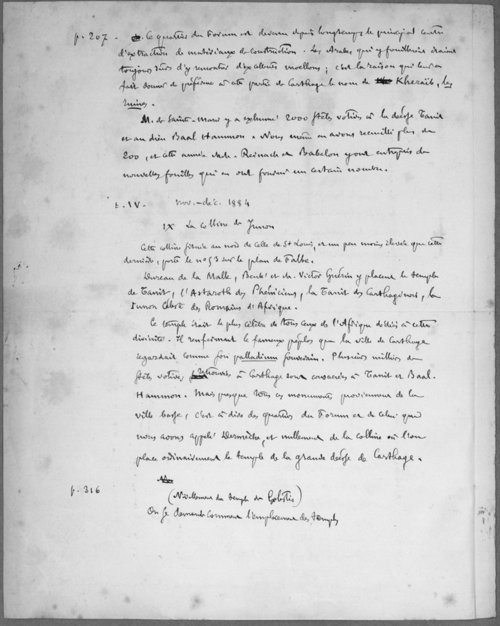 p. 207. Le quartier du Forum est devenu depuis longtemps le principal centre
d'extraction de matériaux de construction. Les Arabes qui y fouillent étaient
toujours sûrs d'y rencontrer d'excellents moellons; c'est la raison qui leur a
fait donner de préférence à cette partie de Carthage le nom de Kheraïb, les
ruines.
M. de Sainte-Marie y a exhumé 2000 stèles votives à la déesse Tanit
et au dieu Baal Hammon. Nous même en avons recueilli plus de
200, et cette année M.M. Reinach et Babelon y ont entrepris de
nouvelles fouilles qui en ont fourni un certain nombre.
t. IV. nov.-déc. 1884
IX La colline de Junon
Cette colline située au nord de celle de St Louis, et un peu moins élevée que cette
dernière, porte le no 53 sur le plan de Falbe.
Dureau de la Malle, Beulé et M. Victor Guérin y placent le temple
de Tanit, l'Astaroth des Phéniciens, la Tanit des Carthaginois, la
Junon Céleste des Romains d'Afrique.
Ce temple était le plus célèbre de tous ceux de l'Afrique dédié à cette
divinité. Il renfermait le fameux péplos que la ville de Carthage
regardait comme son palladium souverain. Plusieurs milliers de
stèles votives, trouvées à Carthage sont consacrés à Tanit et Baal
Hammon. Mais presque tous ces monuments proviennent de la
ville basse, c'est à dire des quartiers du Forum et de celui que
nous avons appelé Dermèche, et nullement de la colline où l'on
place ordinairement le temple de la grande déesse de Carthage.
p. 316
(Nivellement du temple de Coelestis)
On se demande comment l'emplacement des temples